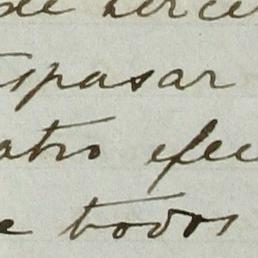 de terce
spasar
atro efec
e todos